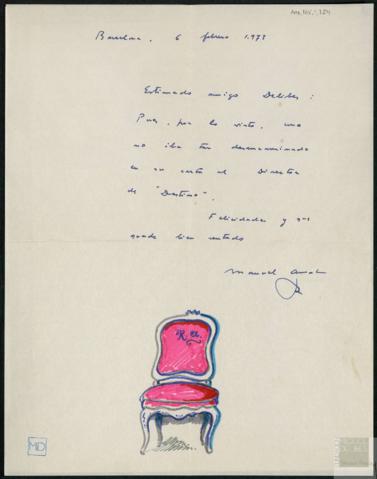 Barcelona, 6 febrero 1.973
Estimado amigo Delibes:
Pues, por lo visto, uno
no iba tan desencaminado
en su carta al Director
de "Destino".
Felicidades y que
quede bien sentado
Manuel
R. A.
MD